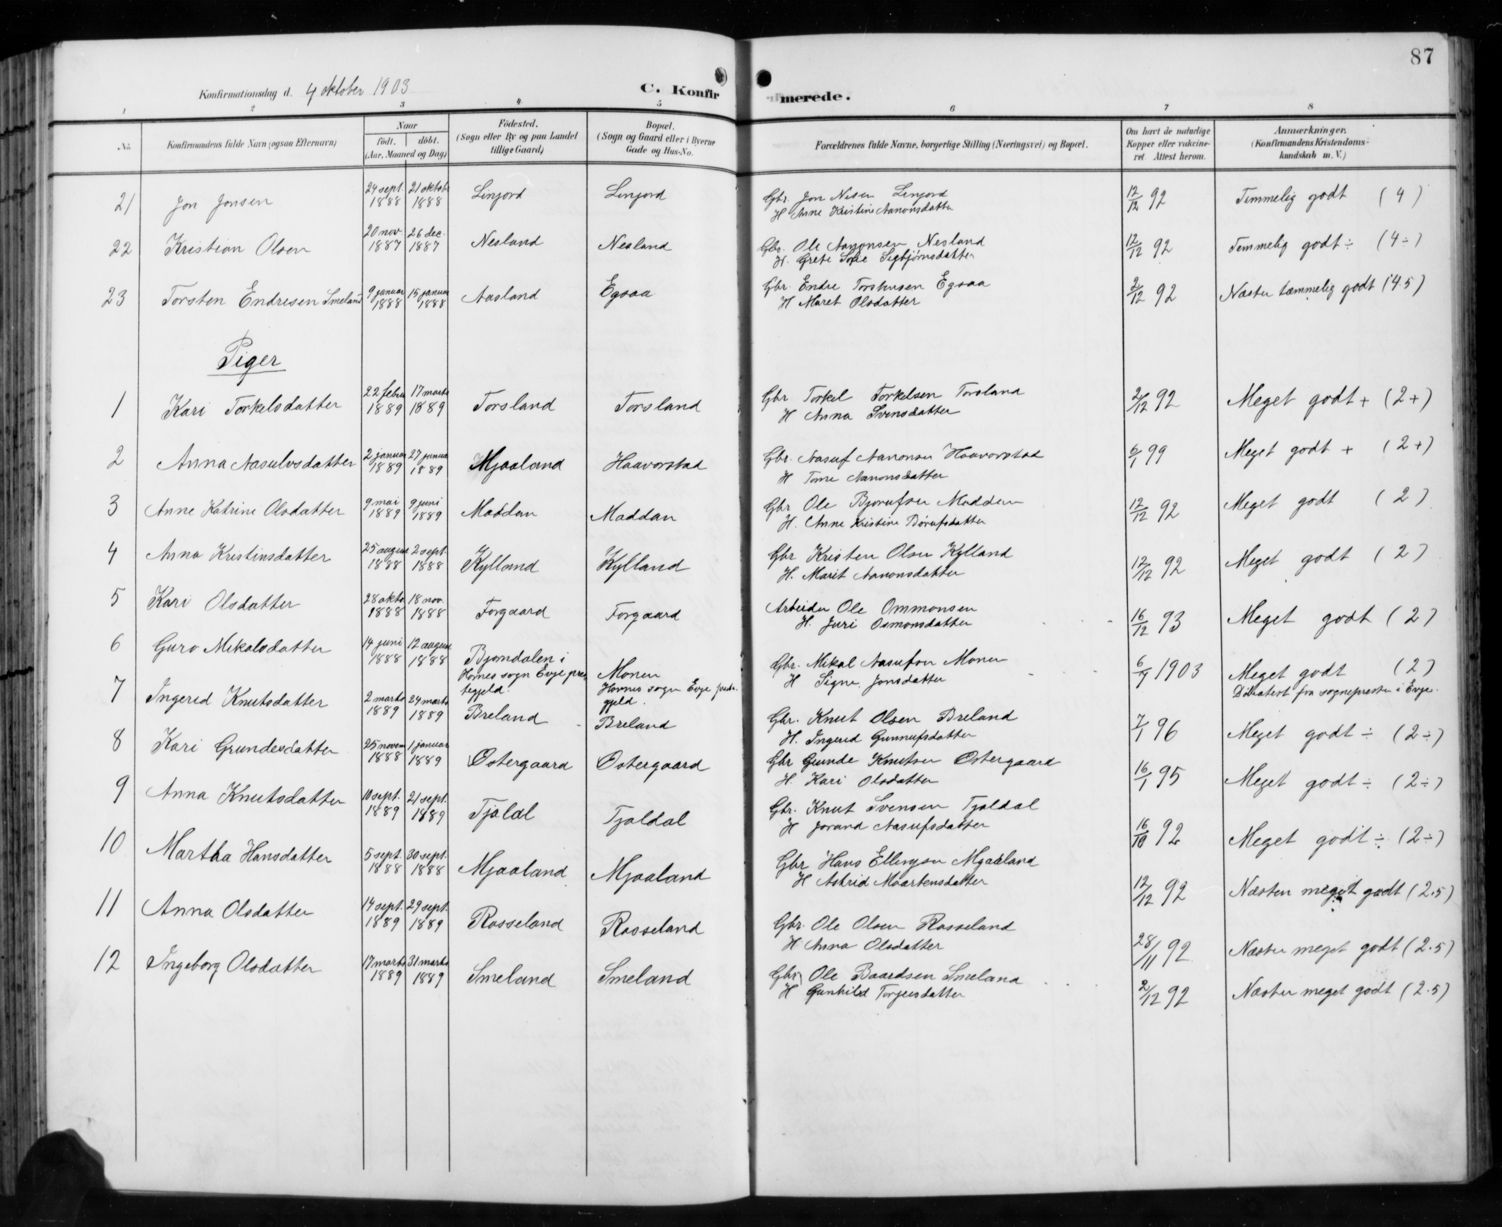 87
Konfirmationsdag d. 4 oktober 1903
C. Konfirmerede.
1 2 3 4 5 6 7 8
No. Konfirmandens fulde Navn (ogsaa Efternavn) Naar født. døbt. (Aar, Maaned og Dag) Fødested. (Sogn eller By og paa Landet tillige Gaard) Bopæl. (Sogn og Gaard eller i Byerne Gade og Hus-No. Forældrenes fulde Navne, borgerlige Stilling (Næringsvei) og Bopæl. Om havt de naturlige Kopper eller vaccineret Attest herom. Anmærkninger. (Konfirmandens Kristendomskundskab m. V.)
21 Jon Jonsen 24 sept. 1888 21 oktob. 1888 Linjord Linjord Gbr. Jon Linjord 12/12 92 Temmelig godt (4)
H. Anne Kristine Aanonsdatter
22 Kristian Olsen 20 nov. 1887 26 dec. 1887 Nesland Nesland Gbr. Ole Aanonsen Nesland 12/12 92 Temmelig godt ÷ (4÷)
H. Grete Sofie Sigbjørnsdatter
23 Torsten Endresen Smeland 9 januar 1888 15 januar 1888 Aasland Egsaa Gbr Endre Torstensen Egsaa 2/12 92 Næsten tæmmelig godt (4.5)
H Maret Olsdatter
Piger
1 Kari Torkelsdatter 22 febru 1889 17 marts 1889 Torsland Torsland Gbr Torkel Torkelsen Torsland 2/12 92 Meget godt + (2+)
H Anna Svensdatter
2 Anna Aasulvsdatter 2 januar 1889 27 januar 1889 Mjaaland Haavorstad Gbr. Aasuf Aanonsen Haavorstad 6/1 99 Meget godt + (2+)
H Tone Aanonsdatter
3 Anne Katrine Olsdatter 9 mai 1889 9 juni 1889 Moddan Moddan Gbr Ole Bjorufsen Moddan 12/12 92 Meget godt (2)
H. Anne Kristine Børufsdatter
4 Anna Kristensdatter 25 august 1888 2 sept. 1888 Kylland Kylland Gbr Kristen Olsen Kylland 12/12 92 Meget godt (2)
H. Marit Aanonsdatter
5 Kari Olsdatter 28 okto 1888 18 nov. 1888 Forgaard Forgaard Arbeider Ole Ommonsen 16/12 93 Meget godt (2)
H. Juri Osmonsdatter
6 Guro Mikalsdatter 14 juni 1888 12 august 1888 Bjorndalen i Hornes sogn Evje prestegjeld. Monen Hornes sogn Evje preste gjeld. Gbr. Mikal Aasufsen Monen 6/9 1903 Meget godt (2)
H Signe Jonsdatter fra sogneprest i Evje.
7 Ingerid Knutsdatter 2 marts 1889 24 marts 1889 Breland Breland Gbr. Knut Olsen Breland 7/1 96 Meget godt ÷ (2÷)
H. Ingerid Gunnufsdatter
8 Kari Grundesdatter 25 novem 1888 1 januar 1889 Ostergaard Ostergaard Gbr Gunde Knutsen Ostergaard 16/1 95 Meget godt ÷ (2÷)
H. Kari Olsdatter
9 Anna Knutsdatter 10 sept. 1889 21 sept. 1889 Tjaldal Gbr. Knut Svensen Tjaldal 16/10 92 Meget godt ÷ (2÷)
H Jorand Aasufsdatter
10 Martha Hansdatter 5 sept. 1888 30 sept. 1888 Mjaaland Mjaaland Gbr Hans Ellingsen Mjaaland 12/12 92 Næsten meget godt (2.5)
H Astrid Maartensdatter
11 Anna Olsdatter 14 sept. 1889 29 sept. 1889 Rosseland Rosseland Gbr. Ole Olsen Rosseland 28/11 92 Næsten meget godt (2.5)
H Anna Olsdatter
12 Ingeborg Olsdatter 17 marts 1889 31 marts 1889 Smeland Smeland Gbr. Ole Baardsen Smeland 2/12 92 Næsten meget godt (2.5)
H Gunhild Torjersdatter